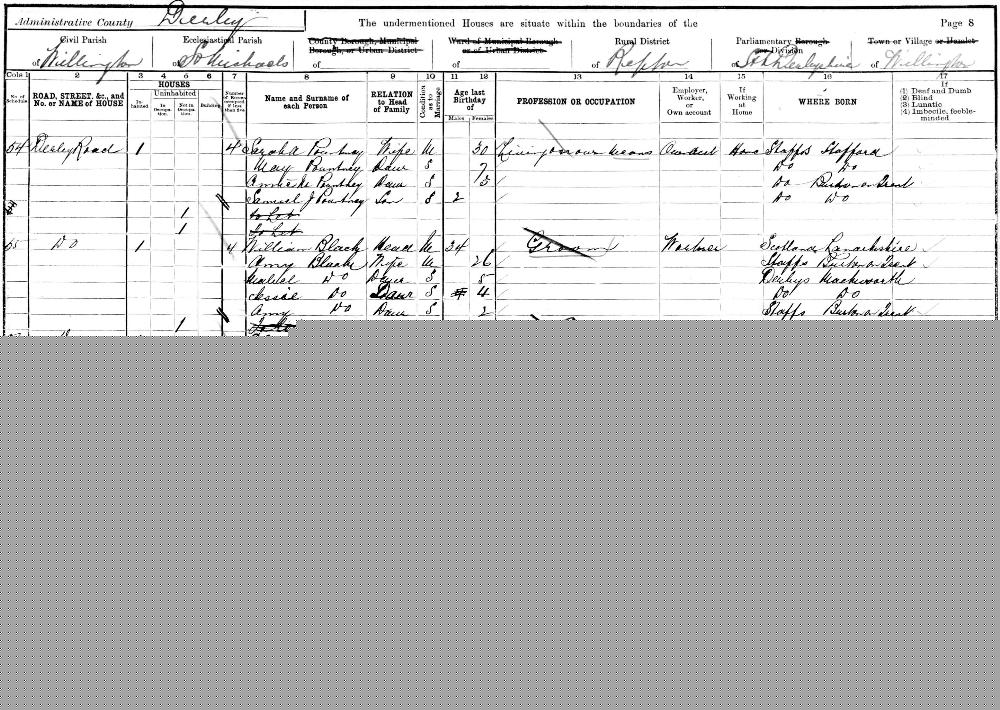 Administrative County Derby The undermentioned Houses are situate within the boundaries of the Page 8
Civil Parish Ecclesiastical Parish County Borough, Municipal Borough, or Urban District Ward of Municipal Borough or of Urban District Rural District Parliamentary Borough or Division Town or Village or Hamlet
of Willington of St Michaels of of of Repton of Sth Derbyshire of Willington
Cols 1 2 3 4 5 6 7 8 9 10 11 12 13 14 15 16 17
No. of Schedule ROAD, STREET, &c., and No. or NAME of HOUSE HOUSES Inhabited Uninhabited In Occupation Not in Occupation Building Number of Rooms occupied if less than five Name and Surname of each Person RELATION to Head of Family Condition as to Marriage Age last Birthday of Males Females PROFESSION OR OCCUPATION Employer, Worker, or Own account If Working at Home WHERE BORN If (1) Deaf and Dumb (2) Blind (3) Lunatic (4) Imbecile, feeble-minded
54 Derby Road 1 4 Sarah A Pountney Wife M 30 Living on our means Own acct Home Staffs Stafford
May Pountney Daur S 7 Do Do
Annie M Pountney Daur S 5 Do Burton on Trent
Samuel J Pountney Son S 2 Do Do
1 to Let
1 to Let
55 Do 1 4 William Black Head M 34 Groom Worker Scotland Lanarkshire
Amy Black Wife M 26 Staffs Burton on Trent
Mabel Do Daur S 5 Derbys Mackworth
Jessie Do Daur S 4 Do Do
Amy Do Daur S 2 Staffs Burton on Trent
1